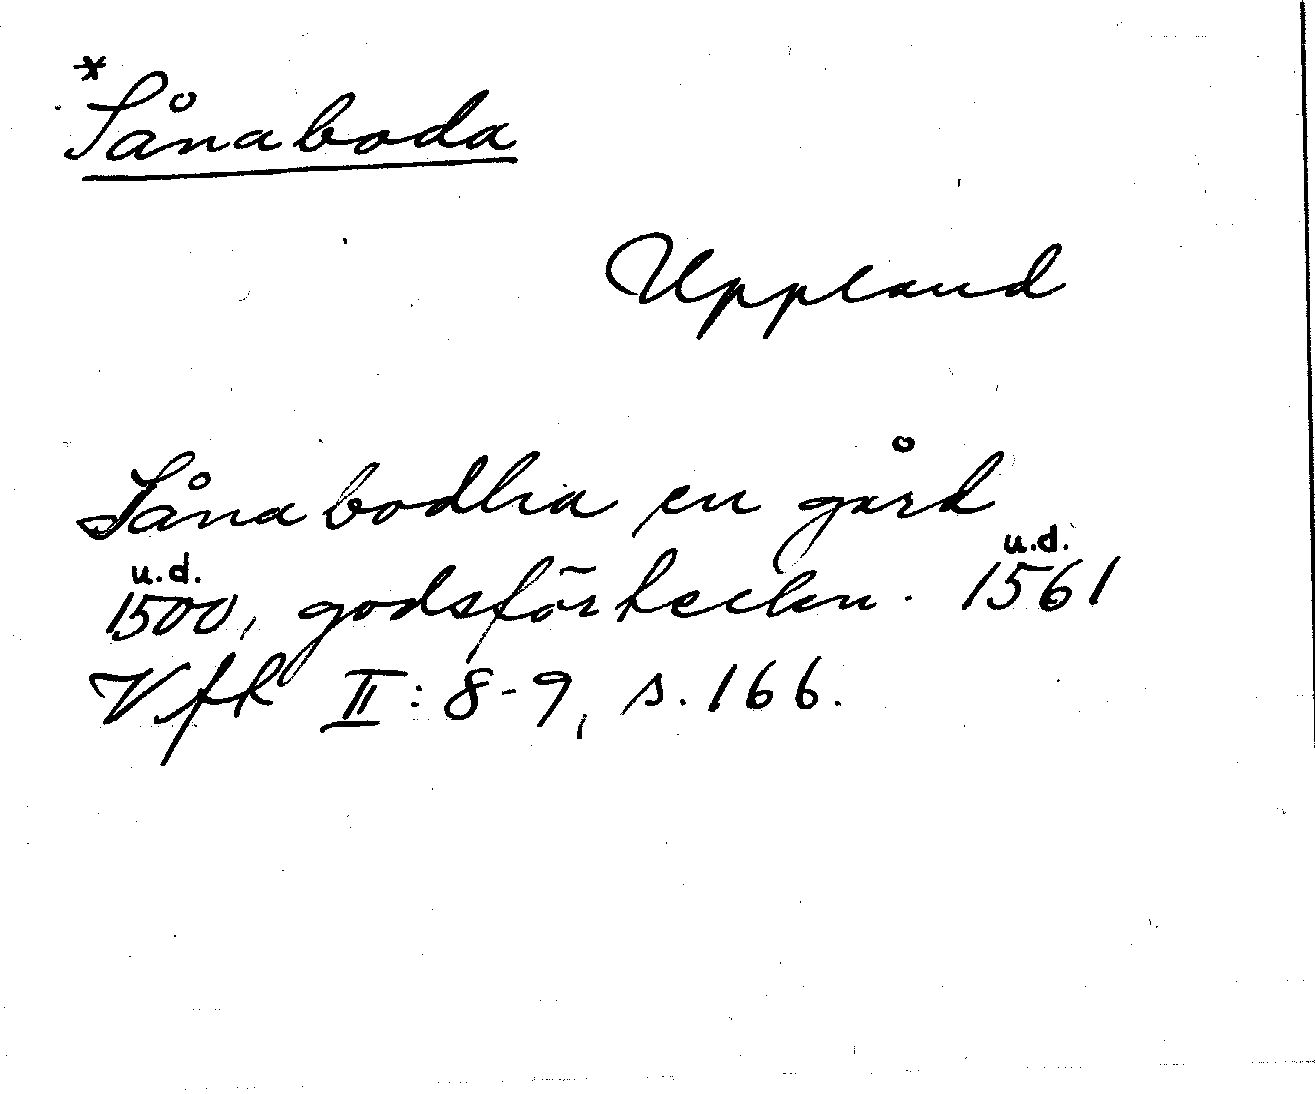 *
Sånaboda
Uppland
Sånabodha en gård
u.d. u.d.
1500, godsförteckn. 1561
Vfk II: 8-9, s. 166.